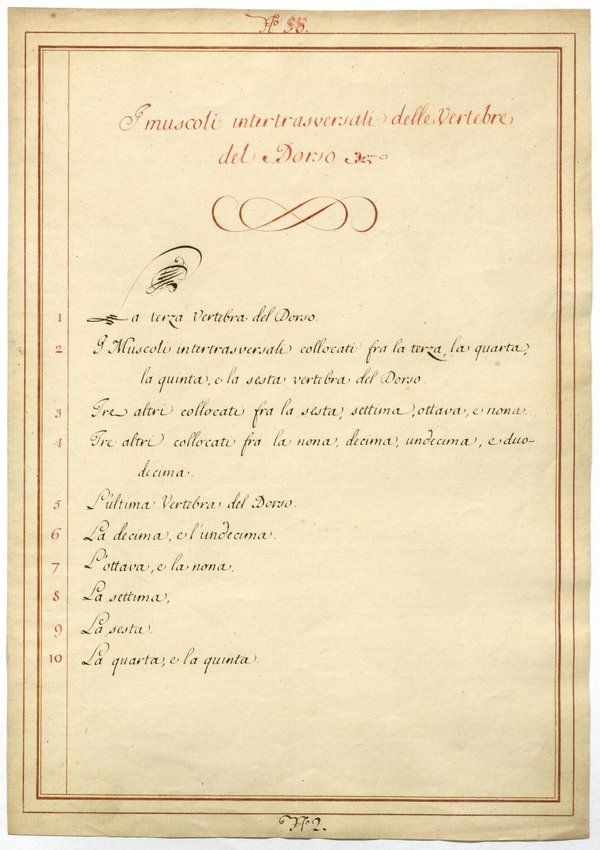 No. 55.
I muscoli intertrasversali delle Vertebre
del Dorso
1 La terza vertebra del Dorso.
2 I Muscoli intertrasversali collocati fra la terza, la quarta,
la quinta, e la sesta vertebra del Dorso.
3 Tre altri collocati fra la sesta, settima, ottava, e nona.
4 Tre altri collocati fra la nona, decima, undecima, e duo-
decima.
5 L'ultima Vertebra del Dorso.
6 La decima, e l'undecima.
7 L'ottava, e la nona.
8 La settima.
9 La sesta.
10 La quarta, e la quinta.
No. 2.